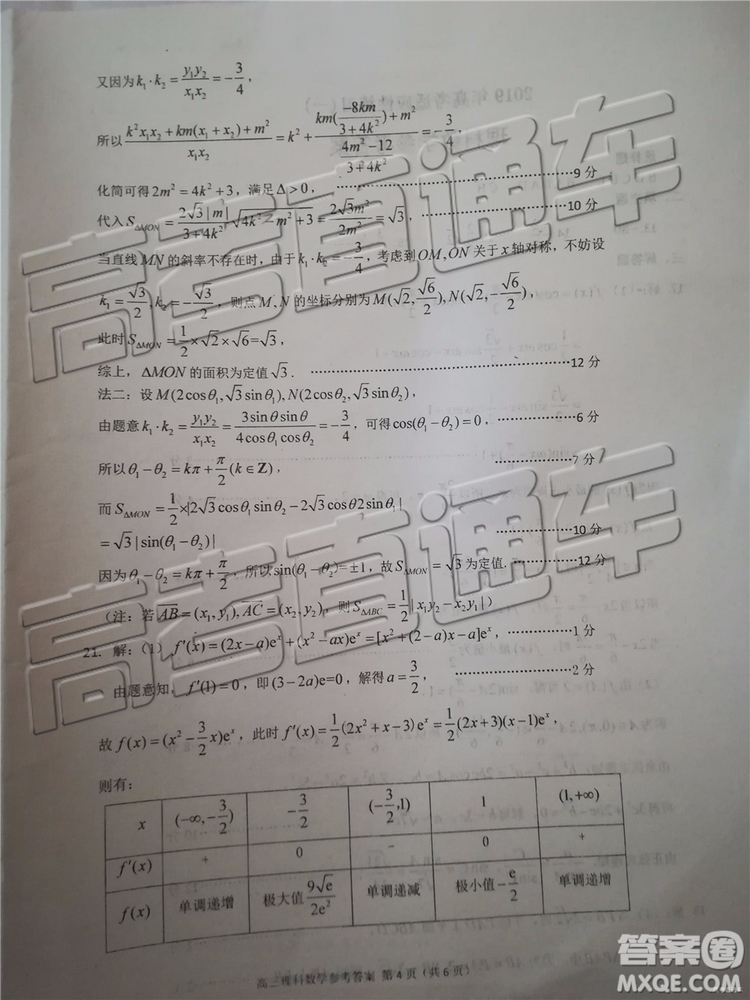 又因为k₁·k₂ = y₁y₂/x₁x₂ = -3/4,
所以 (k²x₁x₂ + km(x₁ + x₂) + m²)/(x₁x₂) = k² + (km(-8km/(3+4k²)) + m²)/((4m²-12)/(3+4k²)) = -3/4.
化简可得2m² = 4k² + 3, 满足Δ > 0, ……9 分
代入S_ΔMON = (2√3|m|/(3+4k²))√(4k² - m² + 3) = 2√3m²/2m² = √3, ……10 分
当直线MN的斜率不存在时, 由于k₁·k₂ = -3/4, 考虑到OM, ON关于x轴对称, 不妨设
k₁ = √3/2, k₂ = -√3/2, 则点M、N的坐标分别为M(√2, √6/2), N(√2, -√6/2),
此时S_ΔMON = 1/2 × √2 × √6 = √3,
综上, ΔMON的面积为定值√3. ……12 分
法二: 设M(2cosθ₁, √3sinθ₁), N(2cosθ₂, √3sinθ₂),
由题意k₁·k₂ = y₁y₂/x₁x₂ = 3sinθsinθ/4cosθ₁cosθ₂ = -3/4, 可得cos(θ₁-θ₂) = 0, ……6 分
所以θ₁-θ₂ = kπ + π/2 (k∈Z), ……7 分
而S_ΔMON = 1/2 × |2√3cosθ₁sinθ₂ - 2√3cosθ2sinθ₁|
= √3|sin(θ₁-θ₂)| ……10 分
因为θ₁-θ₂ = kπ + π/2, 所以sin(θ₁-θ₂) = ±1, 故S_ΔMON = √3为定值. ……12 分
(注: 若AB = (x₁, y₁), AC = (x₂, y₂), 则S_ΔABC = 1/2|x₁y₂ - x₂y₁|)
21. 解: (1) f′(x) = (2x-a)eˣ + (x²-ax)eˣ = [x² + (2-a)x - a]eˣ, ……1 分
由题意知, f′(1) = 0, 即(3-2a)e=0, 解得a = 3/2, ……2 分
故f(x) = (x² - 3/2x)eˣ, 此时f′(x) = 1/2(2x² + x - 3)eˣ = 1/2(2x+3)(x-1)eˣ,
则有:
x (-∞, -3/2) -3/2 (-3/2, 1) 1 (1, +∞)
f′(x) + 0 - 0 +
f(x) 单调递增 极大值9√e/2e² 单调递减 极小值-e/2 单调递增
高三理科数学参考答案 第 4 页 (共 6 页)
高考直通车
高考直通车
答案圈
MXQE.COM